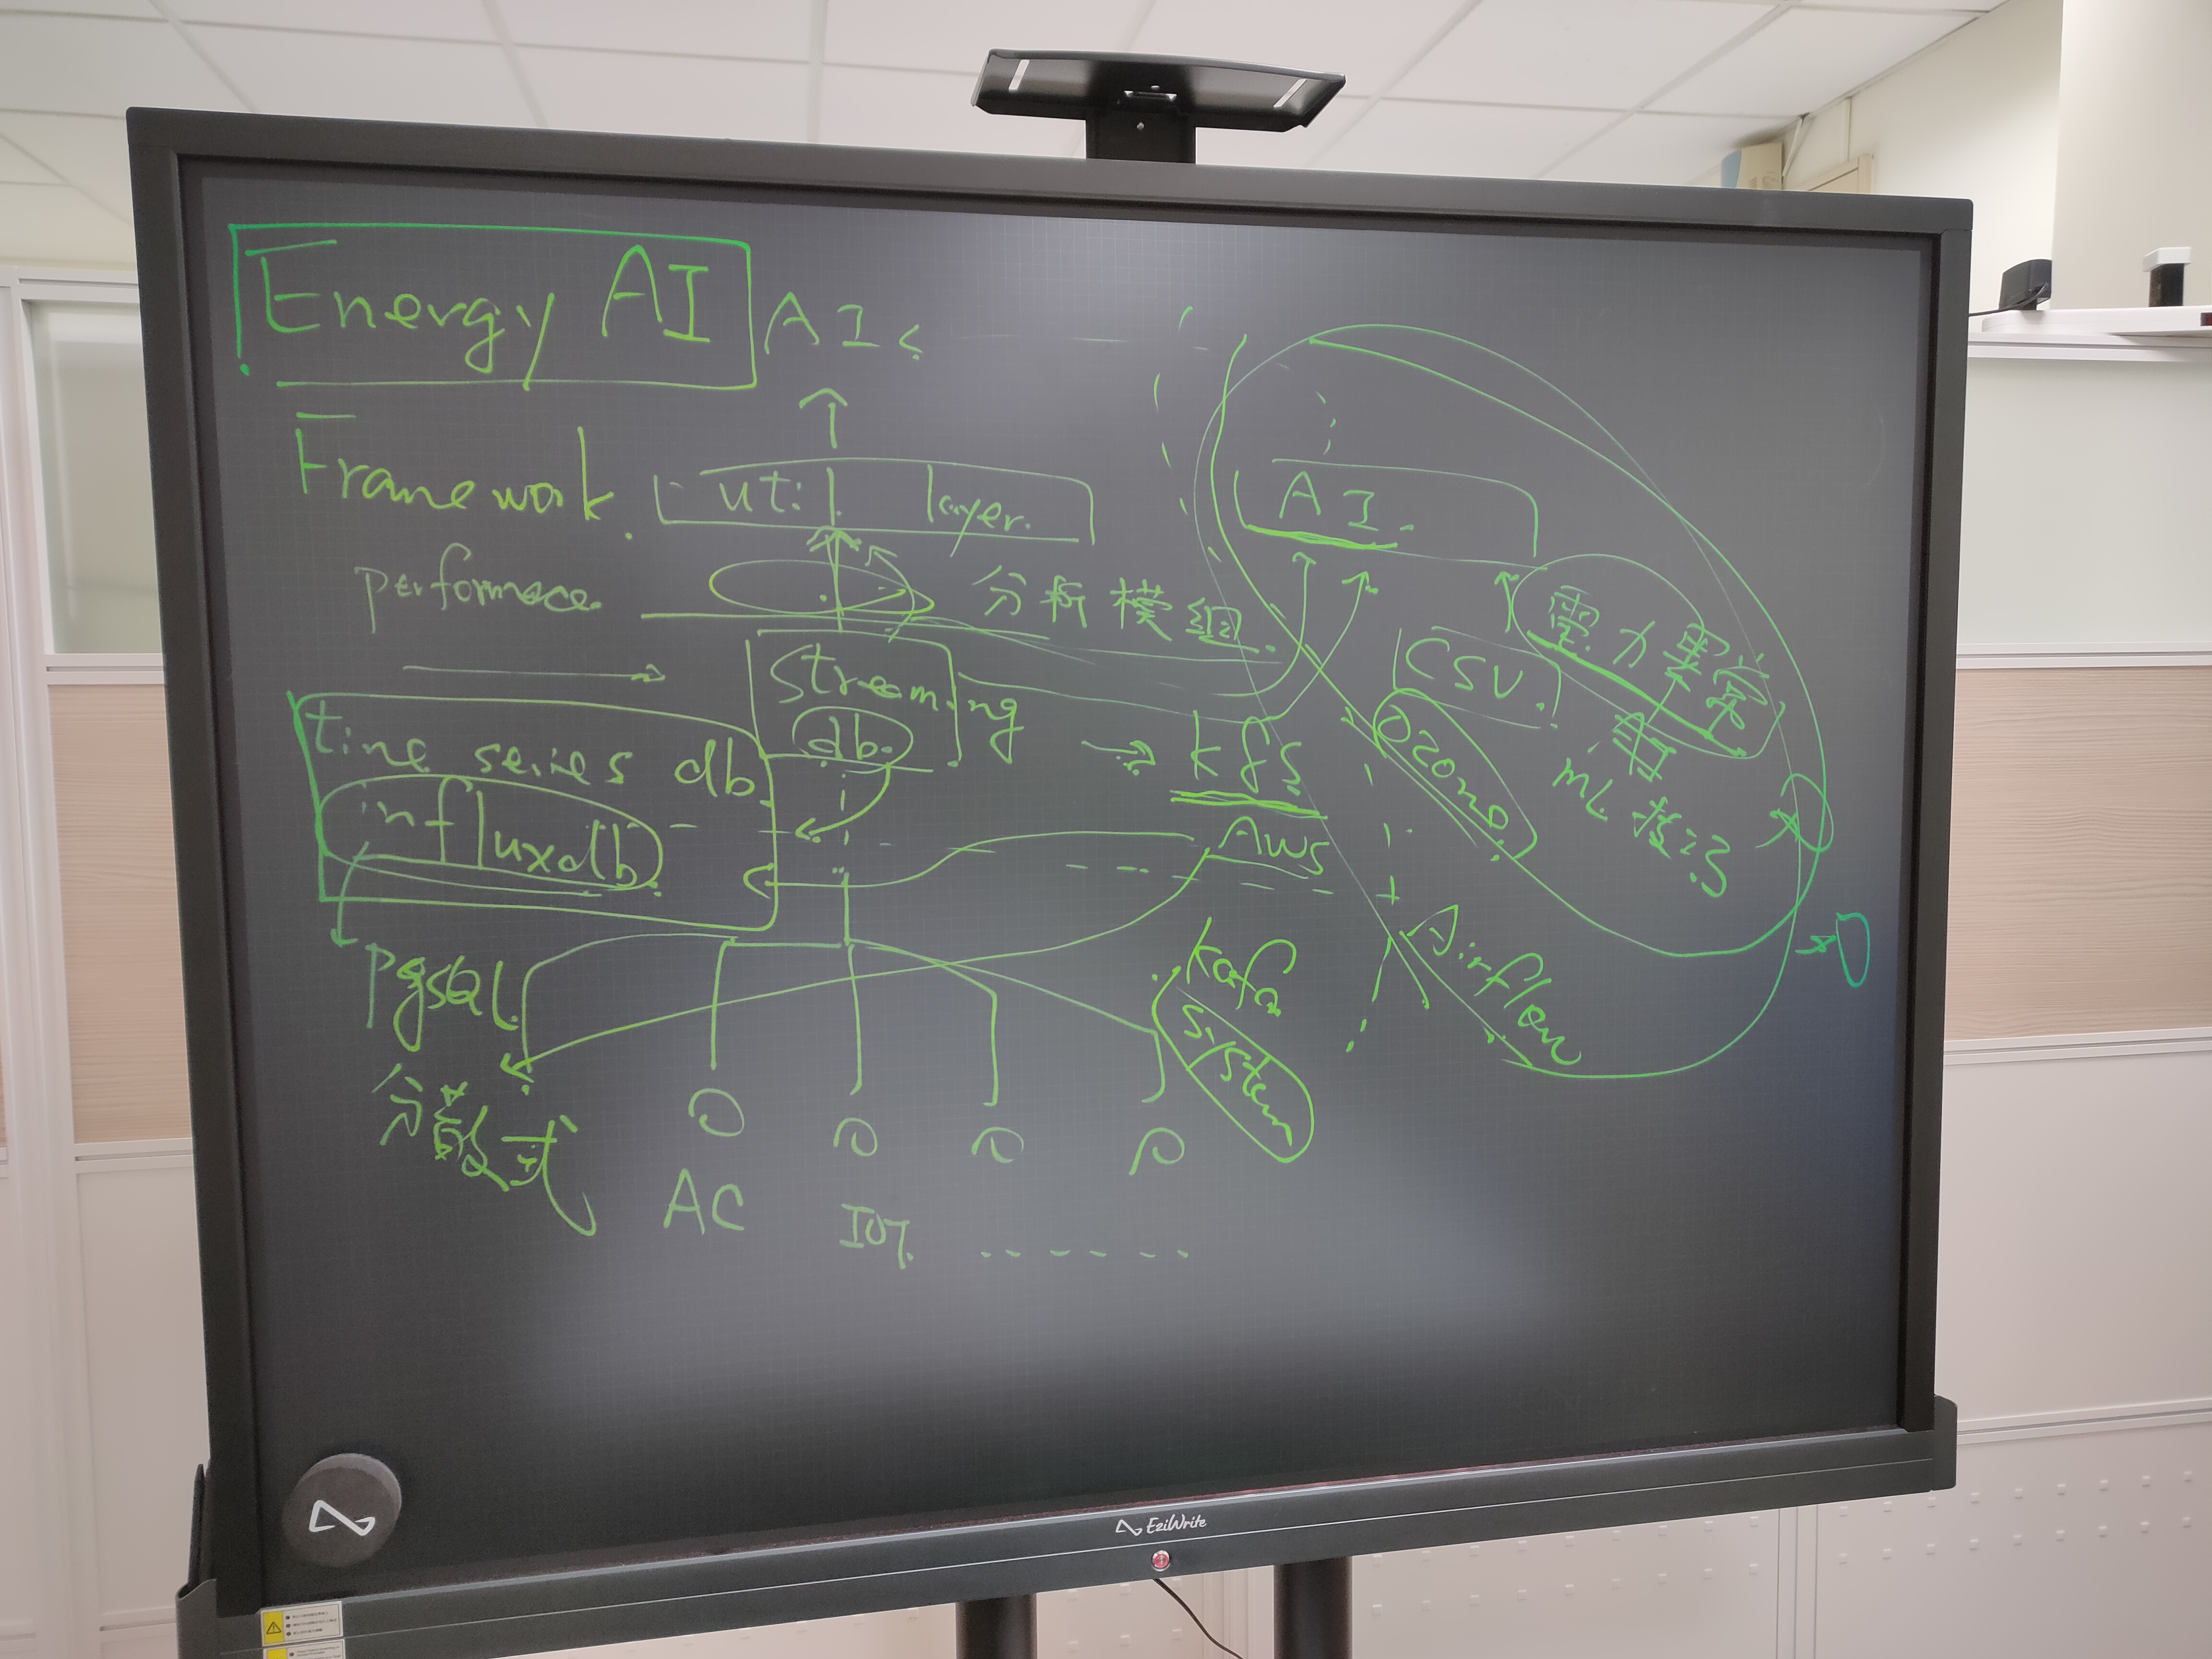 Energy AI
AI
Framework.
util layer.
AI.
performace
分析模組.
電力異常
streaming
db.
CSV.
time series db.
→ kfs
Ozone.
ML 技巧
influxdb.
AWS
pgsQL.
kafa
System
Airflow
分散式
AC
IOT.
EziWrite